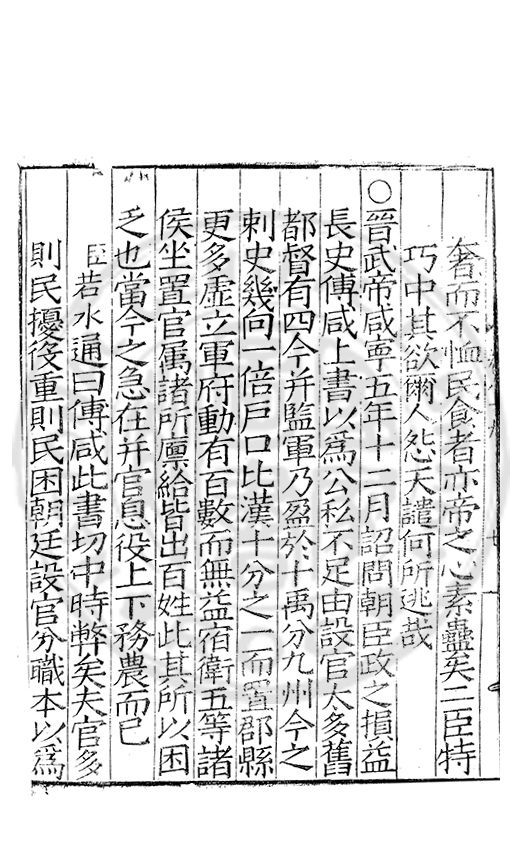 奢而不恤民食者亦帝之心素蠱矣二臣特
巧中其欲爾人怨天譴何所逃哉
○晉武帝咸寧五年十二月詔問朝臣政之損益
長史傅咸上書以爲公私不足由設官太多舊
都督有四今并監軍乃盈於十禹分九州今之
刺史幾向一倍戶口比漢十分之一而置郡縣
更多虛立軍府動有百數而無益宿衛五等諸
侯坐置官属諸所廪給皆出百姓此其所以困
乏也當今之急在并官息役上下務農而已
臣若水通曰傅咸此書切中時弊矣夫官多
則民擾役重則民困朝廷設官分職本以爲